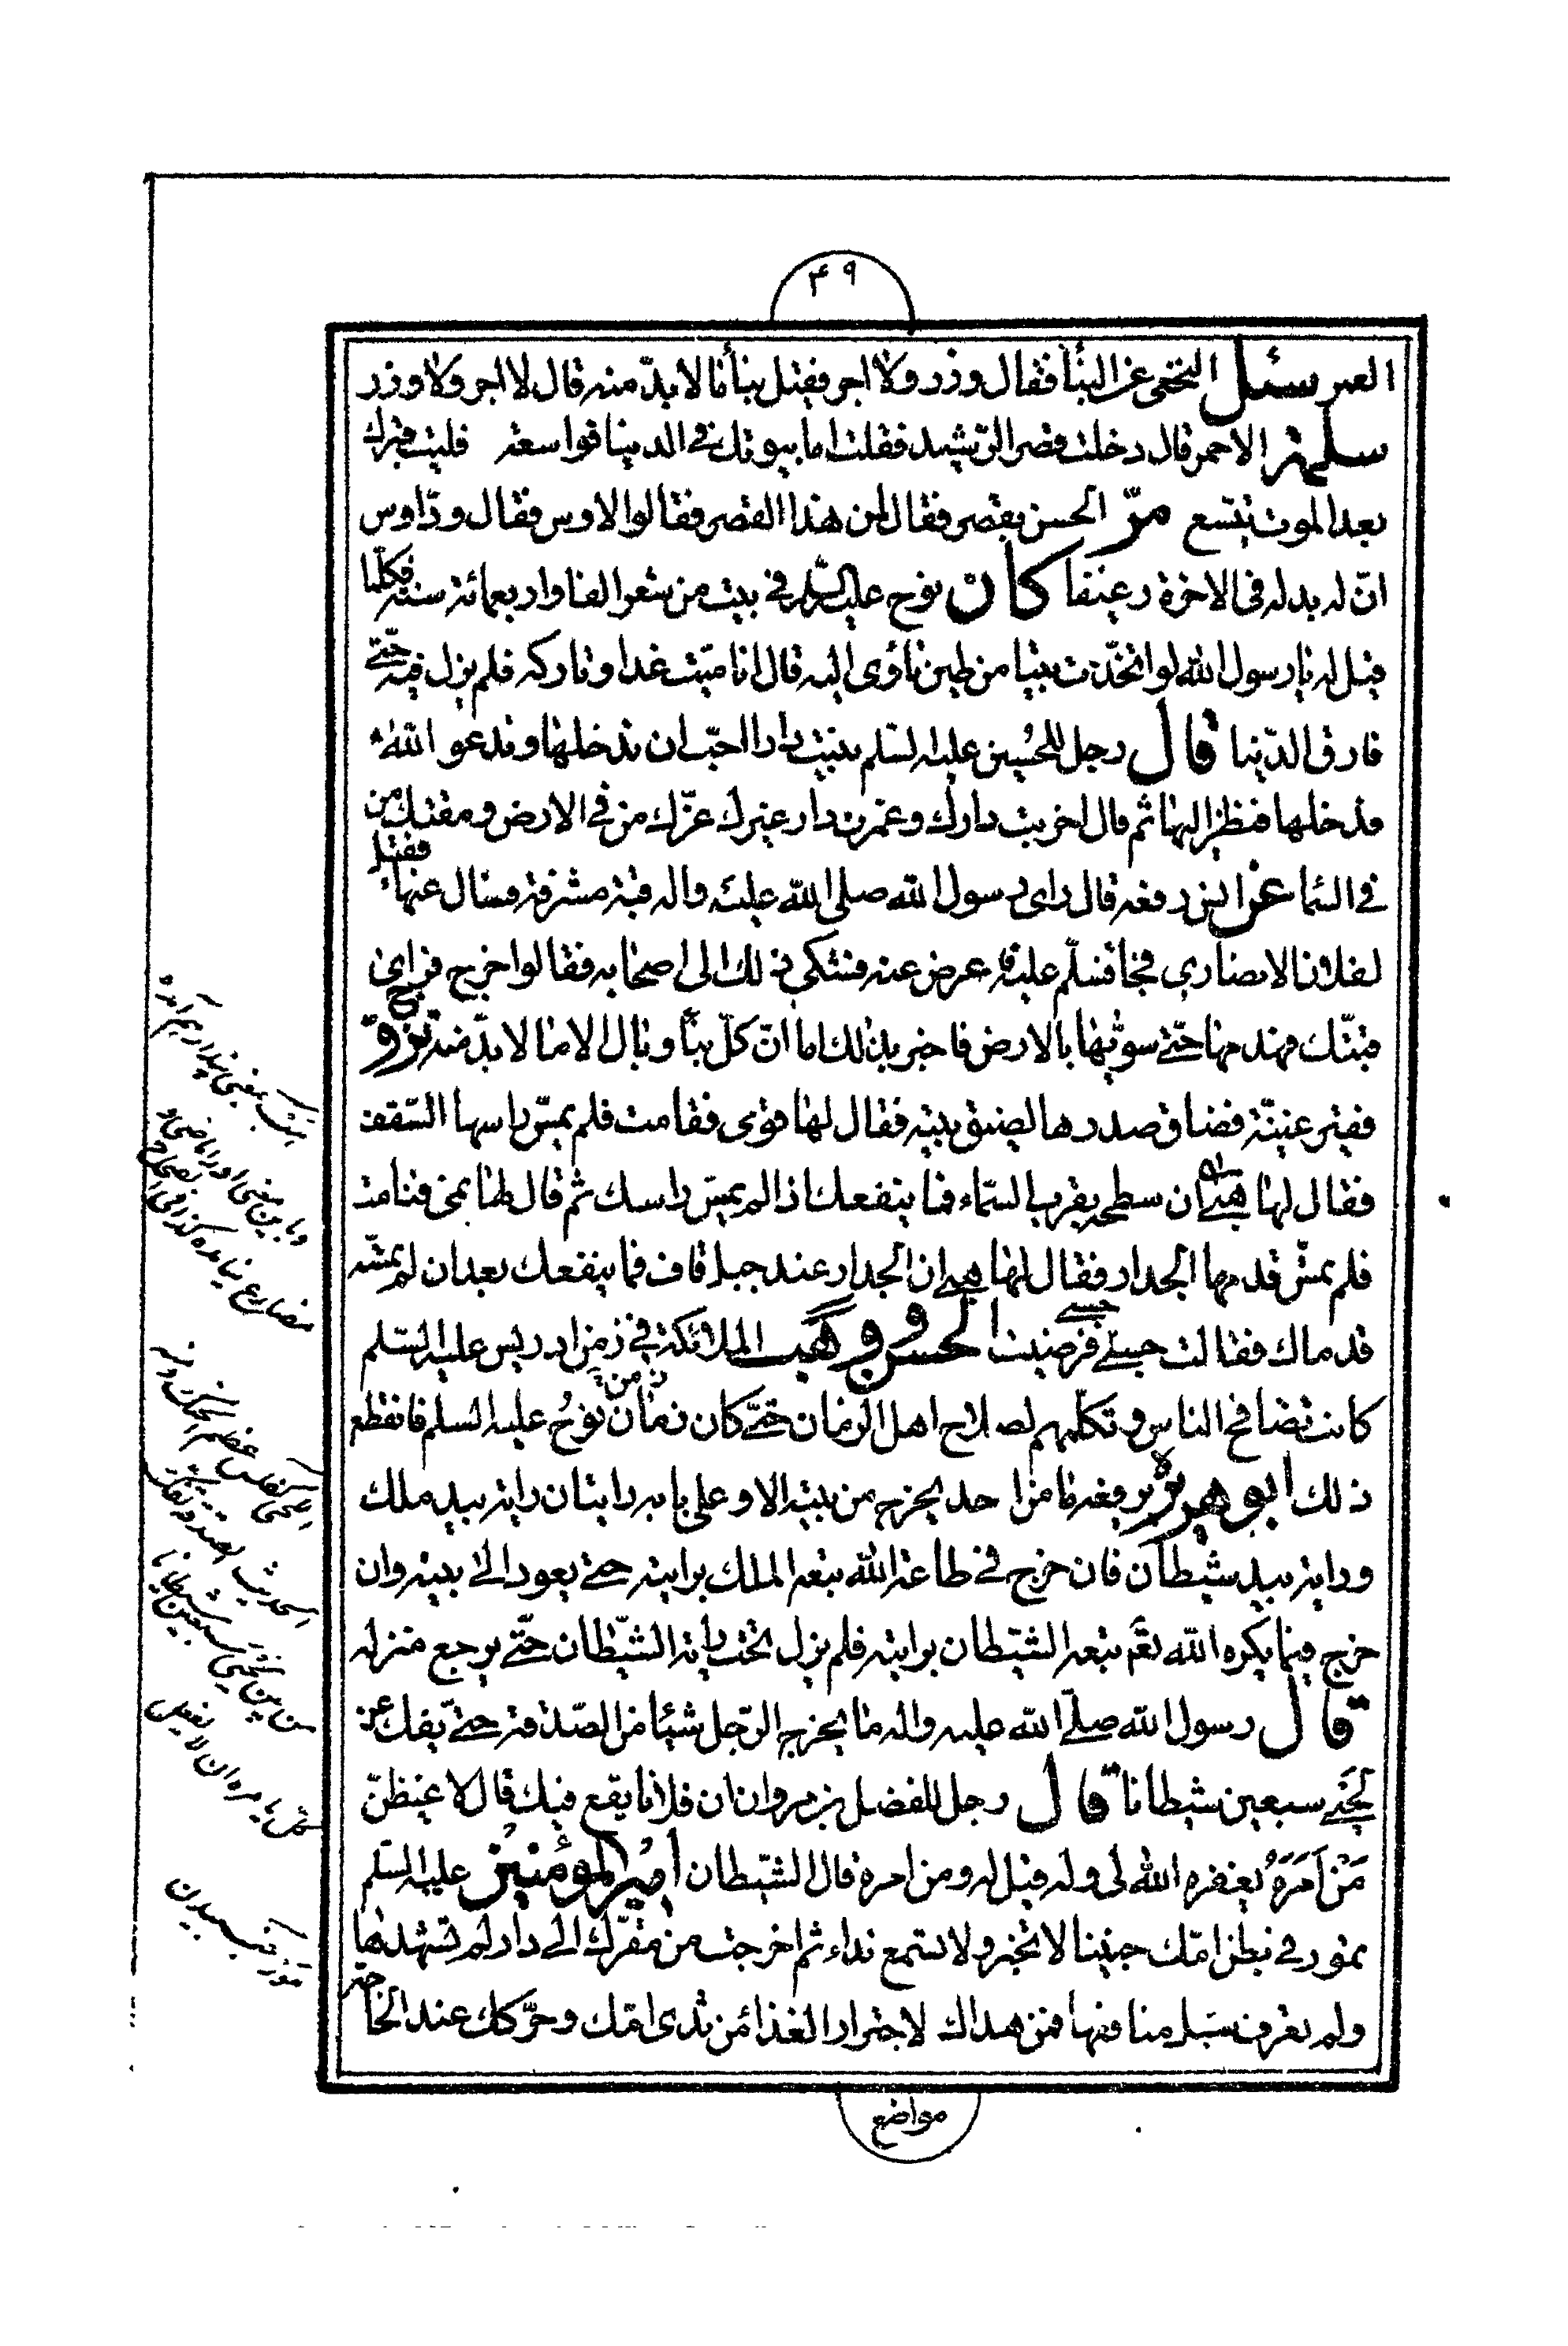 ۴۹
العسر سئل النخعي عن البناء فقال وزر ولا اجر فقيل بناء ما لا بدّ منه قال لا اجر ولا وزر
سلمة الاحمر قال دخلت قصر الرّشيد فقلت اما بيوتك في الدينا فواسعة فليت قبرك
بعد الموت يتسع مرّ الحسن بقصر فقال لمن هذا القصر فقالوا لاوس فقال ودّ اوس
انّ له بدله في الاخرة رغيفا كان نوح عليه السّلم في بيت من شعر الفا واربعمائة سنة فكلما
قيل له يا رسول الله لو اتخذت بيتا من طين تأوى اليه قال انا ميّت غدا وتاركه فلم يزل فيه حتّى
فارق الدّنيا قال رجل للحسين عليه السّلم بنيت دارا احبّ ان تدخلها وتدعو الله
فدخلها فنظر اليها ثم قال اخربت دارك وعمرت دار غيرك غرّك من في الارض ومقتك من
في السّماء عن انس رفعه قال راى رسول الله صلى الله عليه واله قبة مشرفة فسال عنها فقيل
لفلان الانصاري فجاء فسلّم عليه فاعرض عنه فشكى ذلك الى اصحابه فقالوا خرج فراى
قبتك فهدمها حتّى سوّيها بالارض فاخبر بذلك اما انّ كلّ بناء وبال الا ما لا بدّ منه تزوّج
فقير غنيّة فضاق صدرها لضيق بيته فقال لها قومى فقامت فلم يمسّ راسها السّقف
فقال لها هبى ان سطحه يقرب السّماء فما ينفعك اذا لم يمسّ راسك ثم قال لها نمى فنامت
فلم يمسّ قدمها الجدار فقال لها هبى ان الجدار عند جبل قاف فما ينفعك بعد ان لم يمسّه
قدماك فقالت حسبى حسبى فرضيت الحسن ووهب الملائكة في زمن ادريس عليه السّلم
كانت تصافح الناس وتكلمهم لصلاح اهل الزمان حتّى كان زمان نوح عليه السلم فانقطع
ذلك ابو هريرة يرفعه ما من احد يخرج من بيته الا وعلى بابه رايتان راية بيد ملك
وراية بيد شيطان فان خرج في طاعة الله تبعه الملك برايته حتى يعود الى بيته وان
خرج فيما يكره الله تعم تبعه الشيّطان برايته فلم يزل تحت راية الشيّطان حتّى يرجع منزله
قال رسول الله صلّى الله عليه واله ما يخرج الرّجل شيئا من الصّدقة حتّى يفك عن
لحيى سبعين شيطانا قال رجل للفضل بن مروان ان فلانا يقع فيك قال لاغيظنّ
من امره يغفر الله لى وله قيل له ومن امره قال الشيّطان امير المؤمنين عليه السّلم
تمور في بطن امّك جنينا لا تحير ولا تسمع نداء ثم اخرجت من مقرّك الى دار لم تشهدها
ولم تعرف سبل منافعها فمن هداك لاجترار الغذاء من ثدى امّك وحرّكك عند الحاجة
مواضع